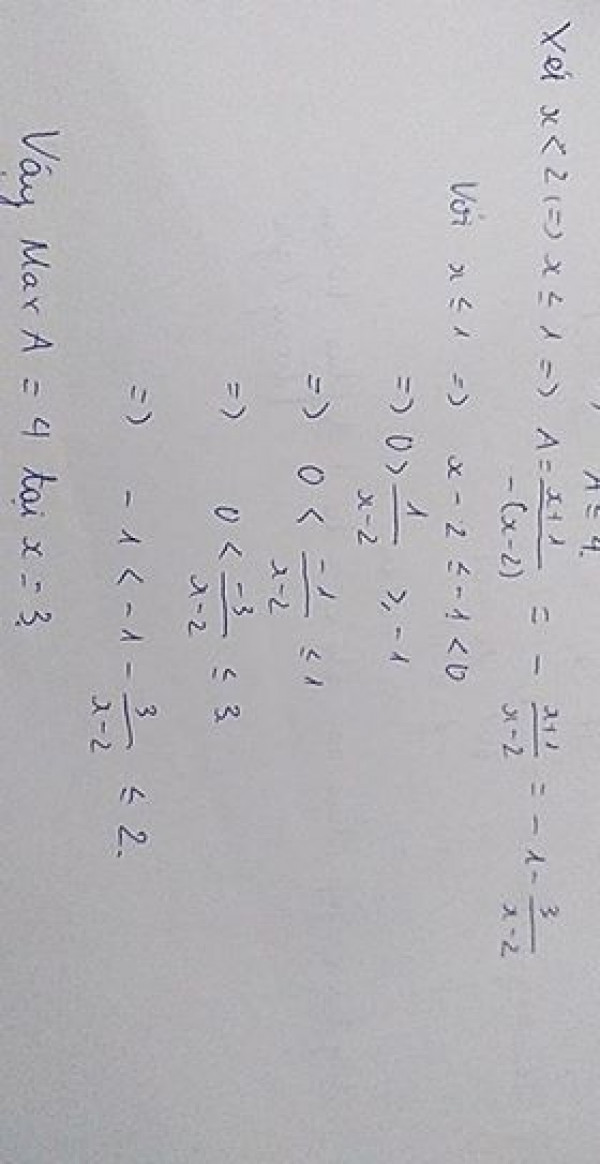 A = 4.
Xét x < 2 (=) x ≤ 1 =) A = \frac{x+1}{-(x-2)} = - \frac{x+1}{x-2} = -1 - \frac{3}{x-2}
Với x ≤ 1 =) x - 2 ≤ -1 < 0
=) 0 > \frac{1}{x-2} ≥ -1
=) 0 < \frac{-1}{x-2} ≤ 1
=) 0 < \frac{-3}{x-2} ≤ 3
=) -1 < -1 - \frac{3}{x-2} ≤ 2.
Vậy Max A = 4 tại x = 3.